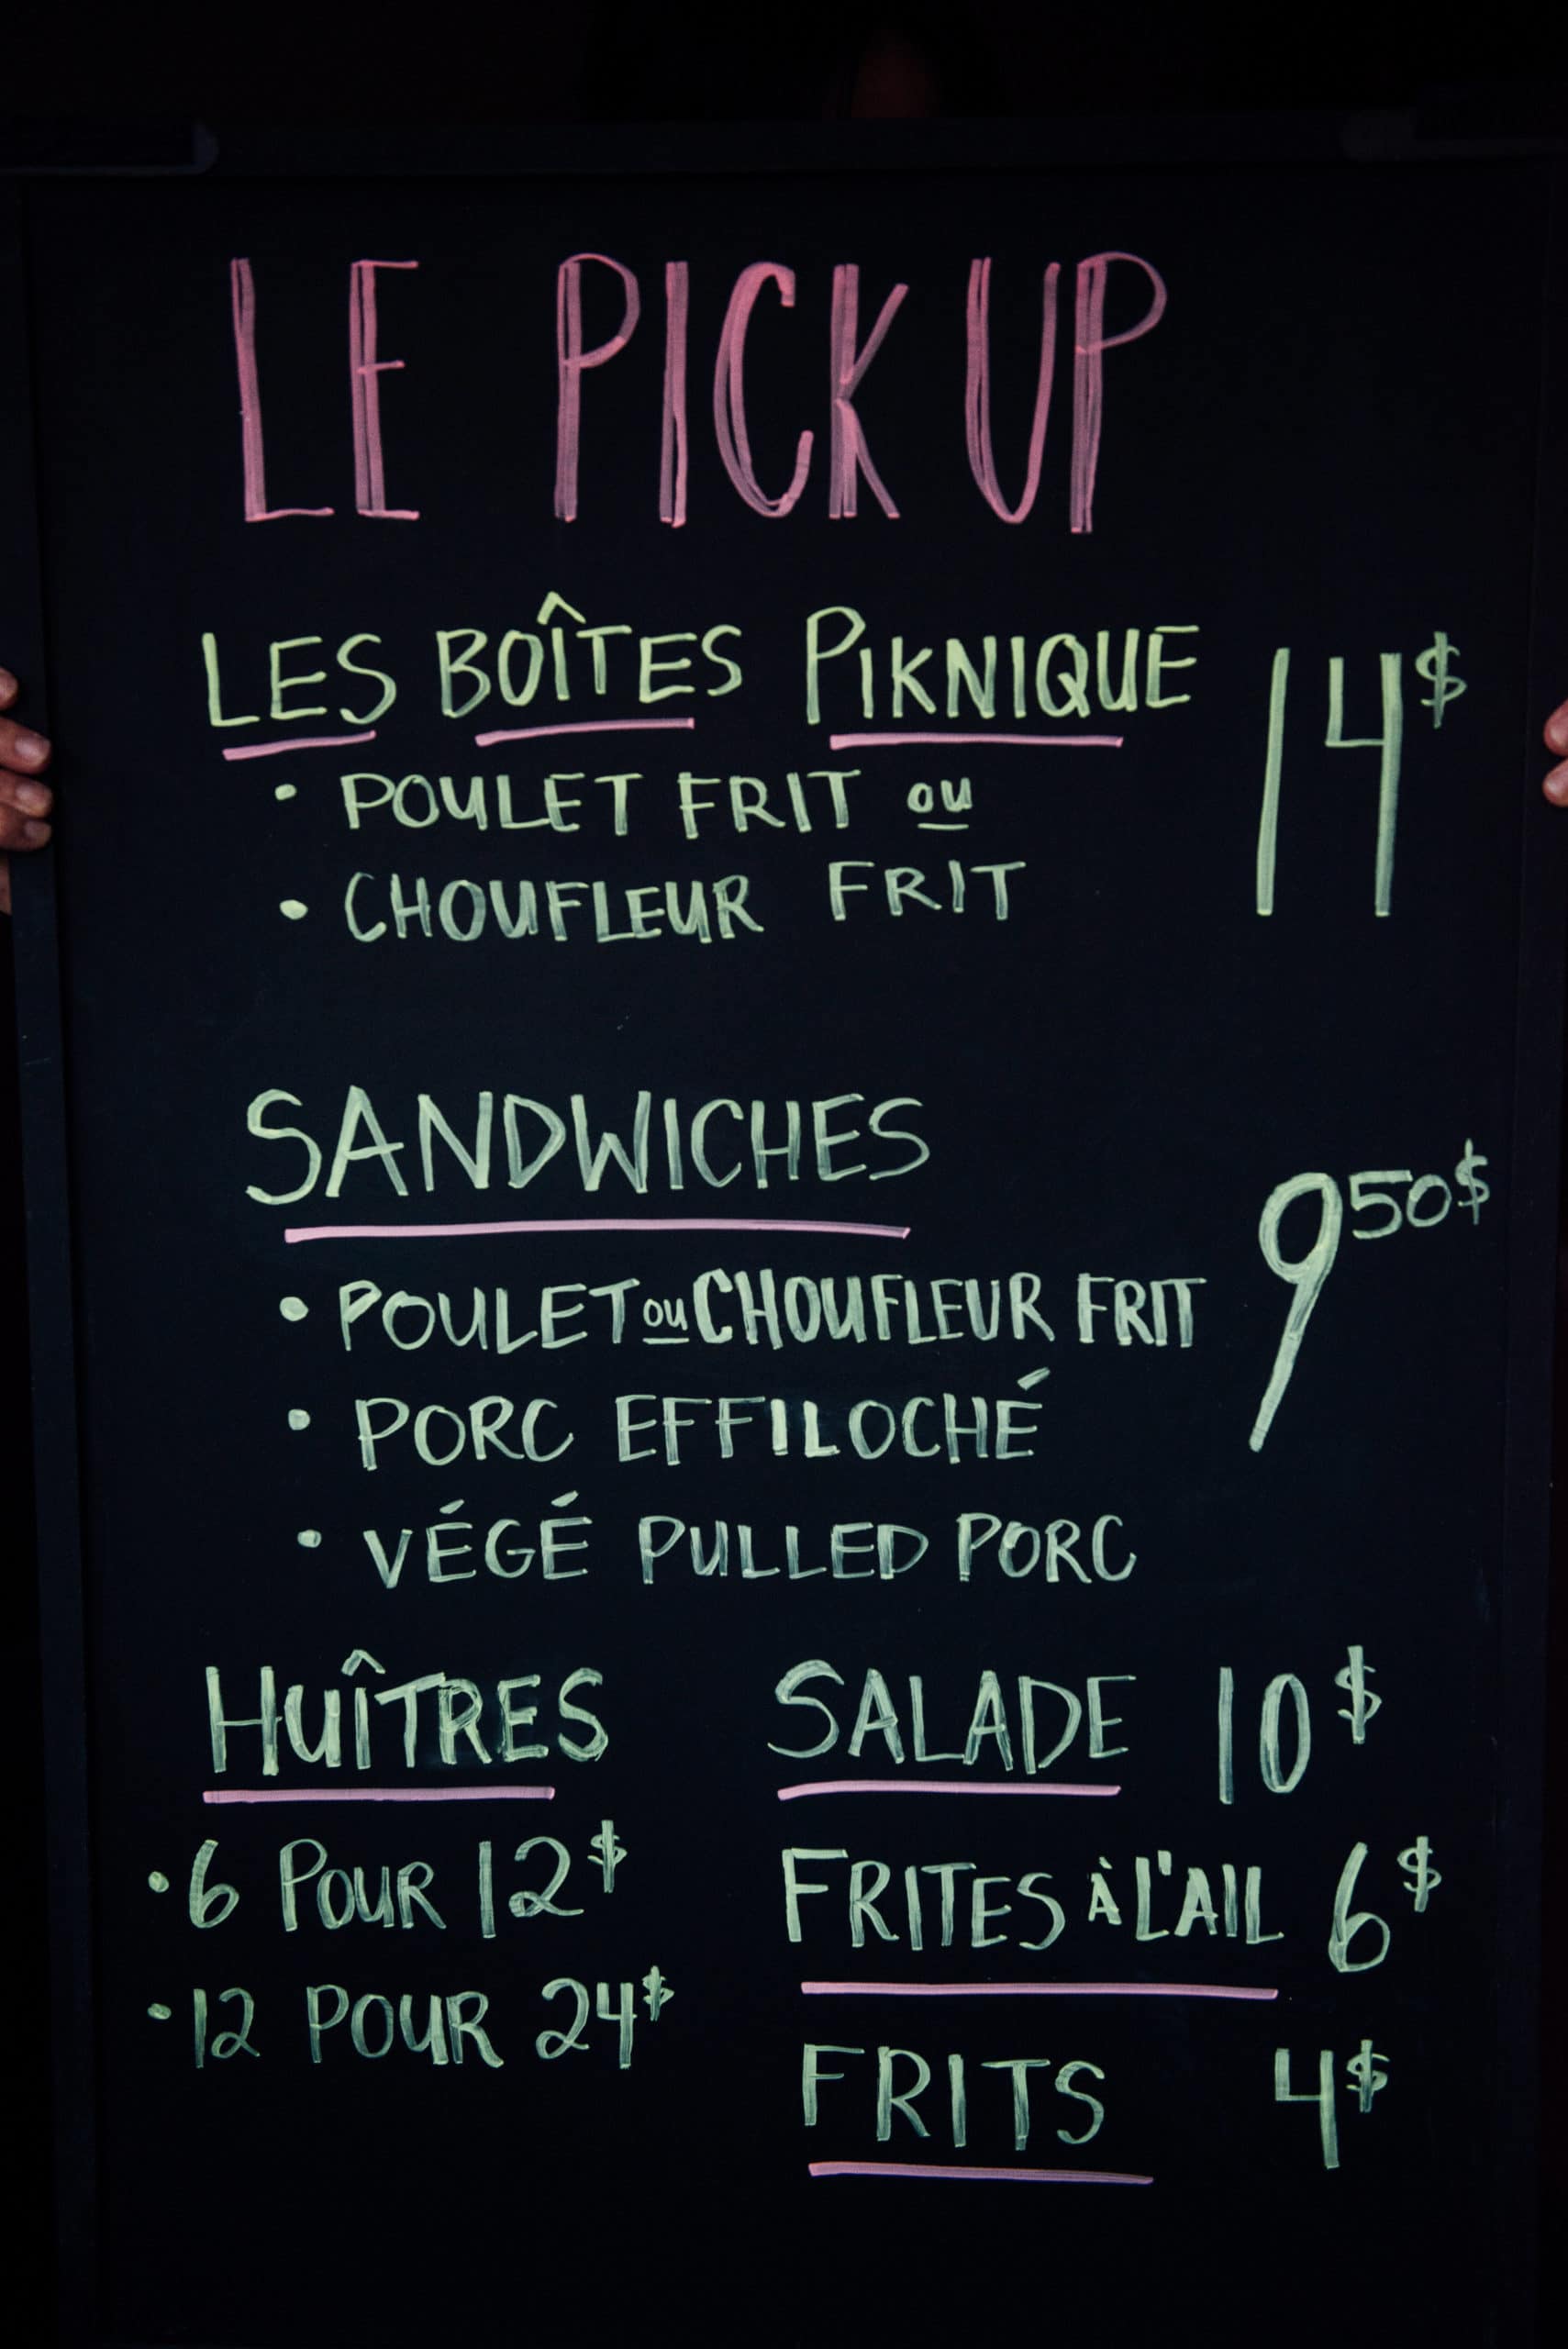 LE PICK UP
LES BOÎTES PIKNIQUE 14$
• POULET FRIT ou
• CHOUFLEUR FRIT
SANDWICHES 9 50$
• POULET ou CHOUFLEUR FRIT
• PORC EFFILOCHÉ
• VÉGÉ PULLED PORC
HUÎTRES
• 6 POUR 12$
• 12 POUR 24$
SALADE 10$
FRITES À L'AIL 6$
FRITS 4$